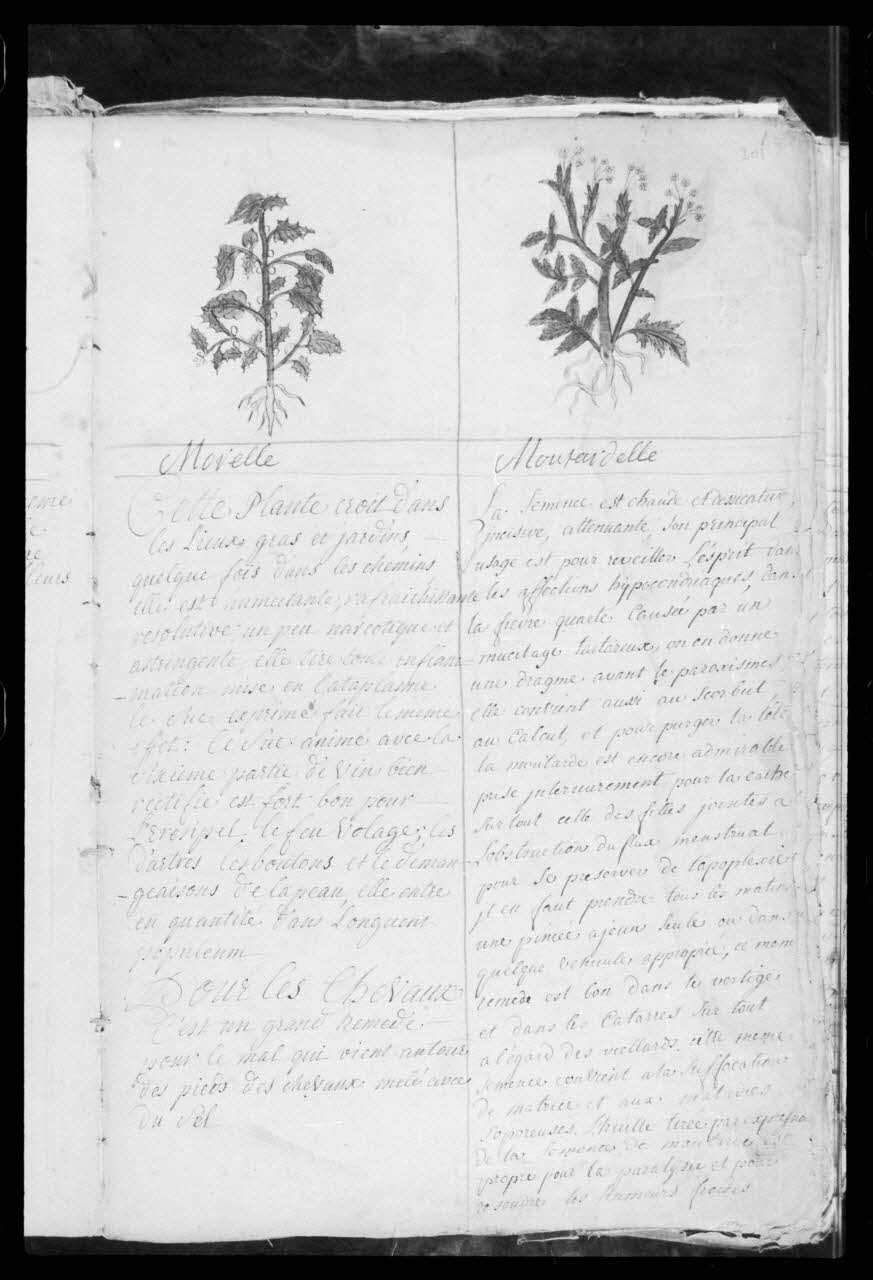 201
Morelle
Cette Plante croit dans
les Lieux gras et jardins
quelque fois dans les chemins
elle est humectante, rafraichissante
resolutive un peu narcotique et
astringente, elle tire toute enflam-
-mation mise en Cataplasme
le exprimé fait le meme
effet: le Suc animé avec la
sixieme partie de Vin bien
rectifié est fort bon pour
L'eresipel, le feu Volage; les
dartres les boutons et le deman-
-geaisons de la peau, elle entre
en quantité dans Longuent
populeum
Pour les Chevaux
C'est un grand Remede
pour le mal qui vient autour
des pieds des chevaux melé avec
du Sel
Moutardelle
La Semence est chaude et dessicative,
incisive, attenuante, Son principal
usage est pour reveiller L'esprit dans
les affections hypocondriaques, dans
la fievre quarte Causée par un
mucilage tartareux, on en donne
une dragme avant le paroxismes
elle convient aussi au Scorbut,
au Calcul, et pour purger la tête
la moutarde est encore admirable
prise jnterieurement pour la
Sur tout celle des filles jointes a
Lobstruction du flux menstrual
pour Se preserver de lapoplexie
jl en faut prendre tous les matins
une pincée a jeun Seule ou dans
quelque vehicule approprié, ce mem
remede est bon dans le vertige
et dans les Catarres Sur tout
a légard des viellards. cette meme
Semence convient a la Suffocation
de matrice et aux maladies
Soporeuses. L'huille tirée par
de la Semence de moutarde est
propre pour la paralysie et pour
resoudre les humeurs froides